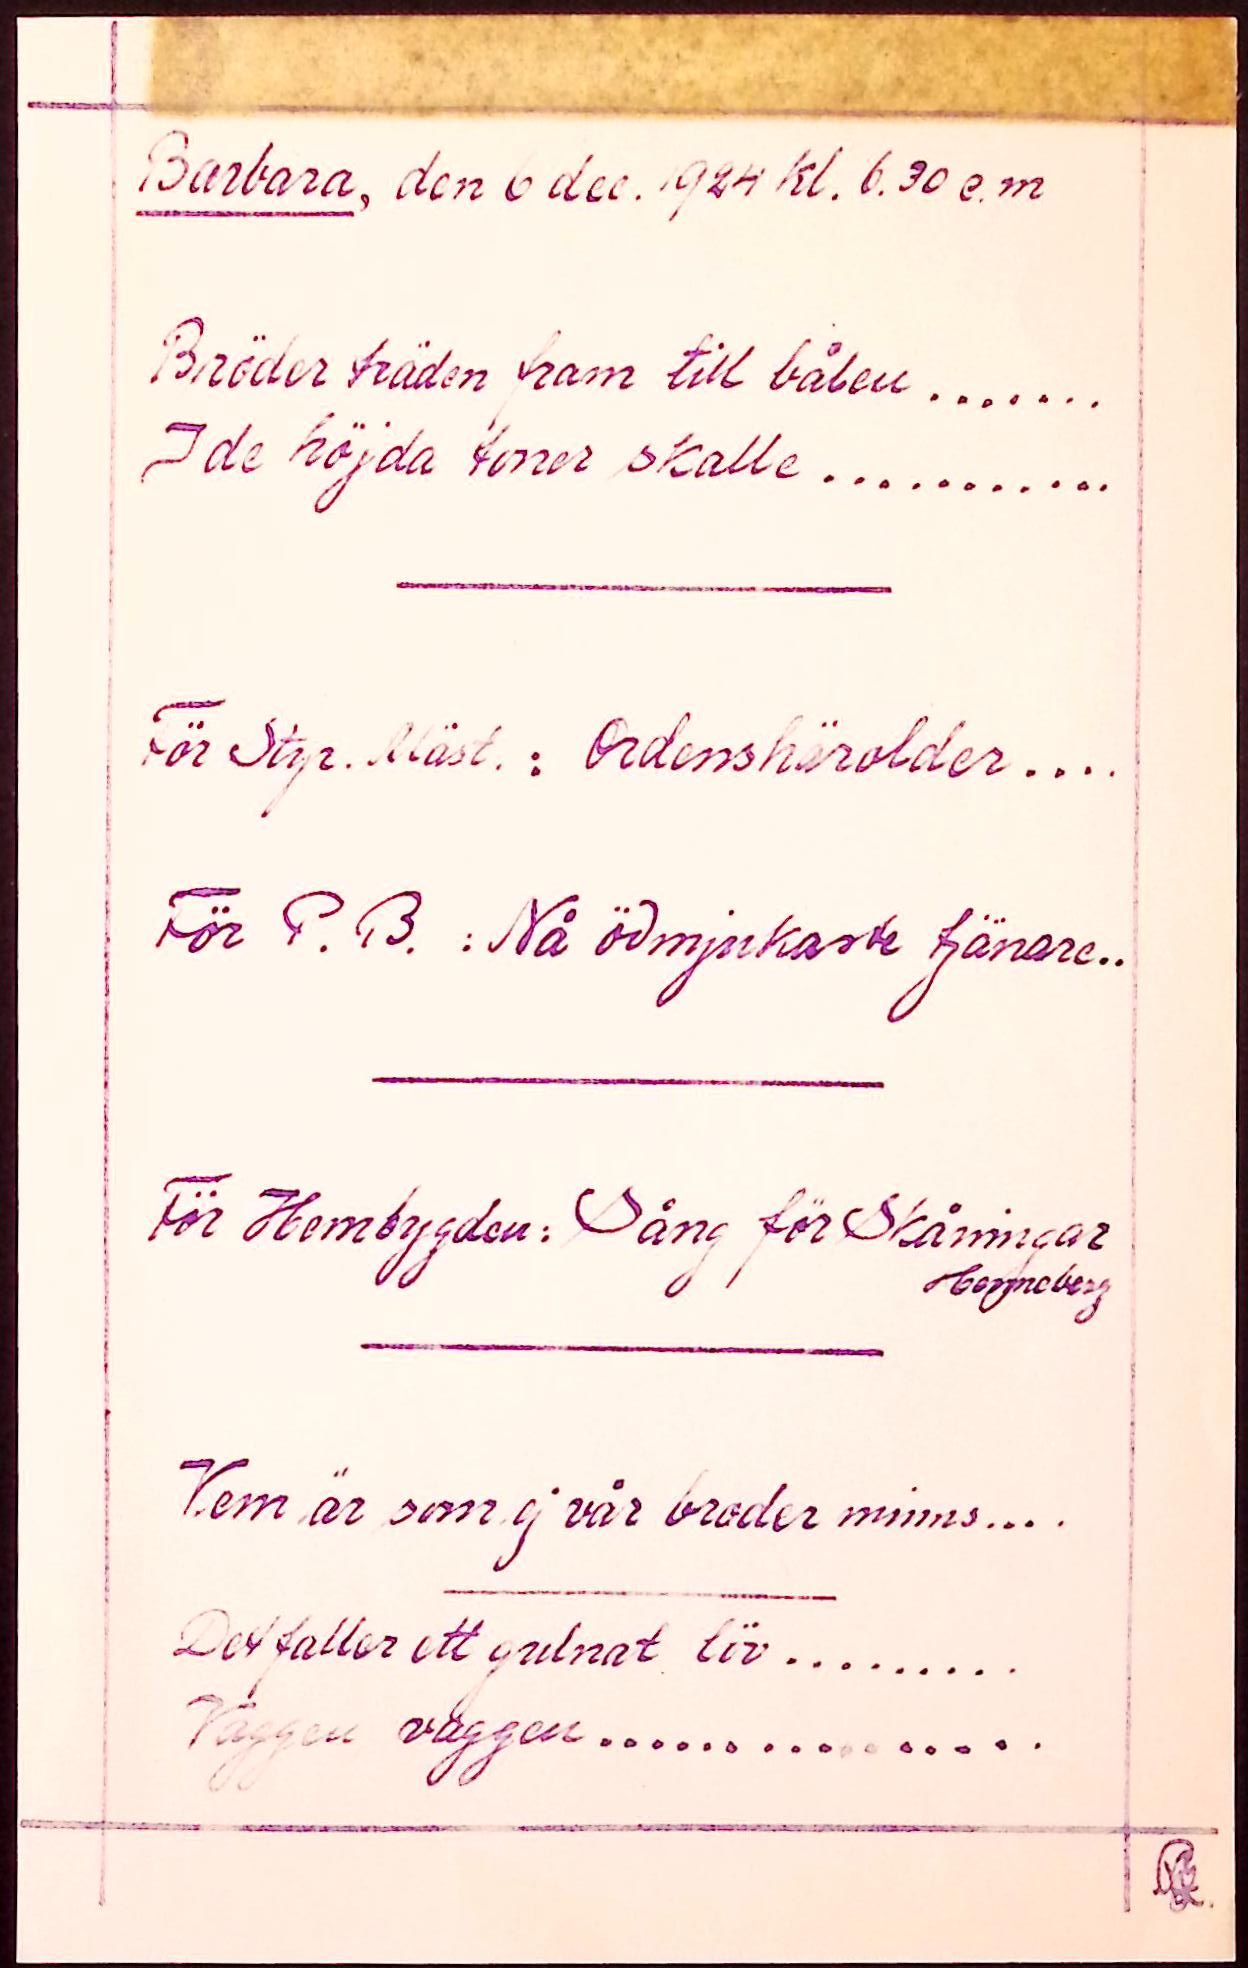 Barbara, den 6 dec. 1924 kl. 6.30 e.m
Bröder träden fram till bålen .......
I de höjda toner skalle ...........
För Styr. Mäst. : Ordenshärolder ....
För P. B. : Nå ödmjukaste tjänare ..
För Hembygden: Sång för Skåningar
Henneberg
Vem är som ej vår broder minns ....
Det faller ett gulnat löv .........
Vaggen vaggen ................